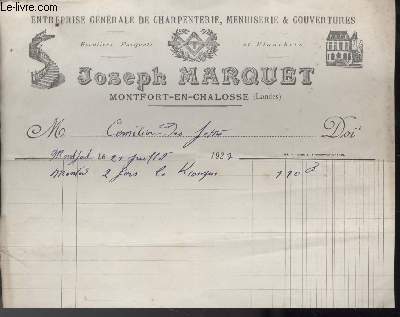 le-livre.com
ENTREPRISE GÉNÉRALE DE CHARPENTERIE, MENUISERIE & COUVERTURES
Escaliers Parquets et Planchers
Joseph MARQUET
MONTFORT-EN-CHALOSSE (Landes)
M Comité des Doit
Montfort le 21 1927
Monter 2 fois le Kiosque 120 f